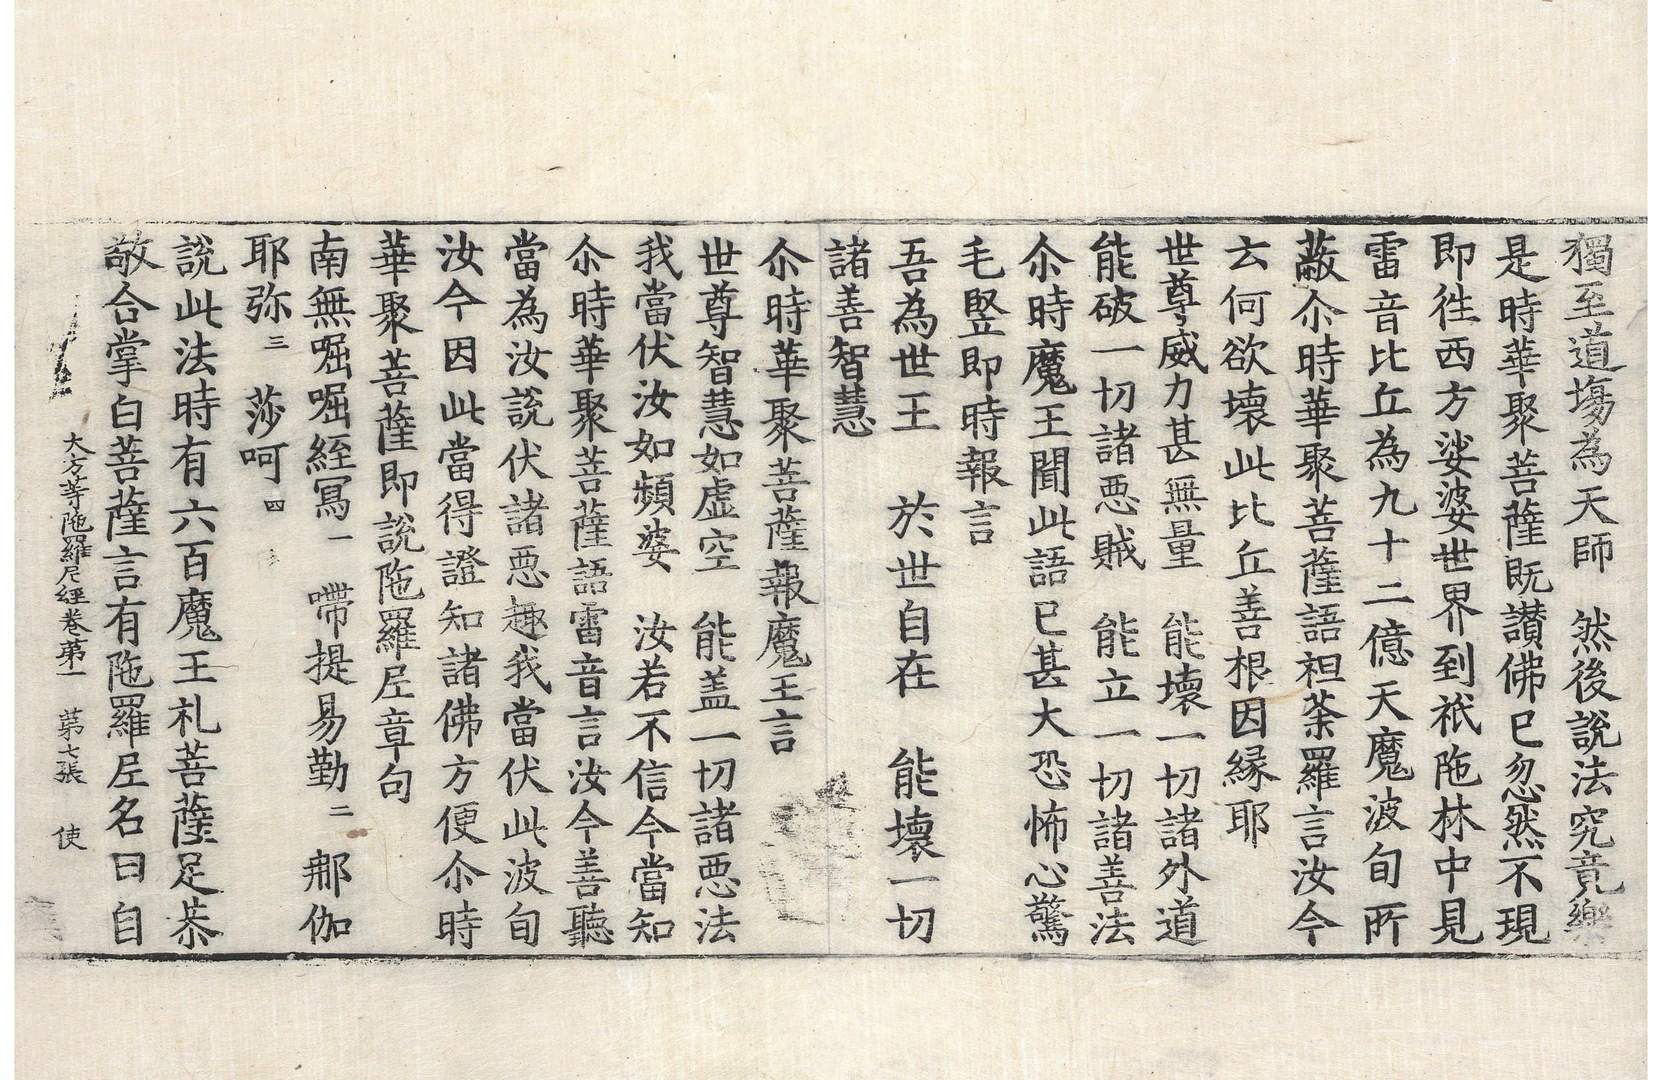 獨至道場為天師　然後說法究竟樂
是時華聚菩薩既讃佛已忽然不現
即徃西方娑婆世界到祇陁林中見
雷音比丘為九十二億天魔波旬所
蔽尒時華聚菩薩語袒荼羅言汝今
云何欲壞此比丘善根因縁耶
世尊威力甚無量　能壞一切諸外道
能破一切諸悪賊　能立一切諸善法
尒時魔王聞此語已甚大恐怖心驚
毛竪即時報言
吾為世王　於世自在　能壞一切
諸善智慧
尒時華聚菩薩報魔王言
世尊智慧如虚空　能盖一切諸悪法
我當伏汝如頻婆　汝若不信今當知
尒時華聚菩薩語雷音言汝今善聽
當為汝說伏諸悪趣我當伏此波旬
汝今因此當得證知諸佛方便尒時
華聚菩薩即說陁羅尼章句
南無啒啒絰寫一　嚌提易勤二　那伽
耶弥三　莎呵四
說此法時有六百魔王礼菩薩足恭
敬合掌白菩薩言有陁羅尼名曰自
大方等陁羅尼經卷第一　第七張　使